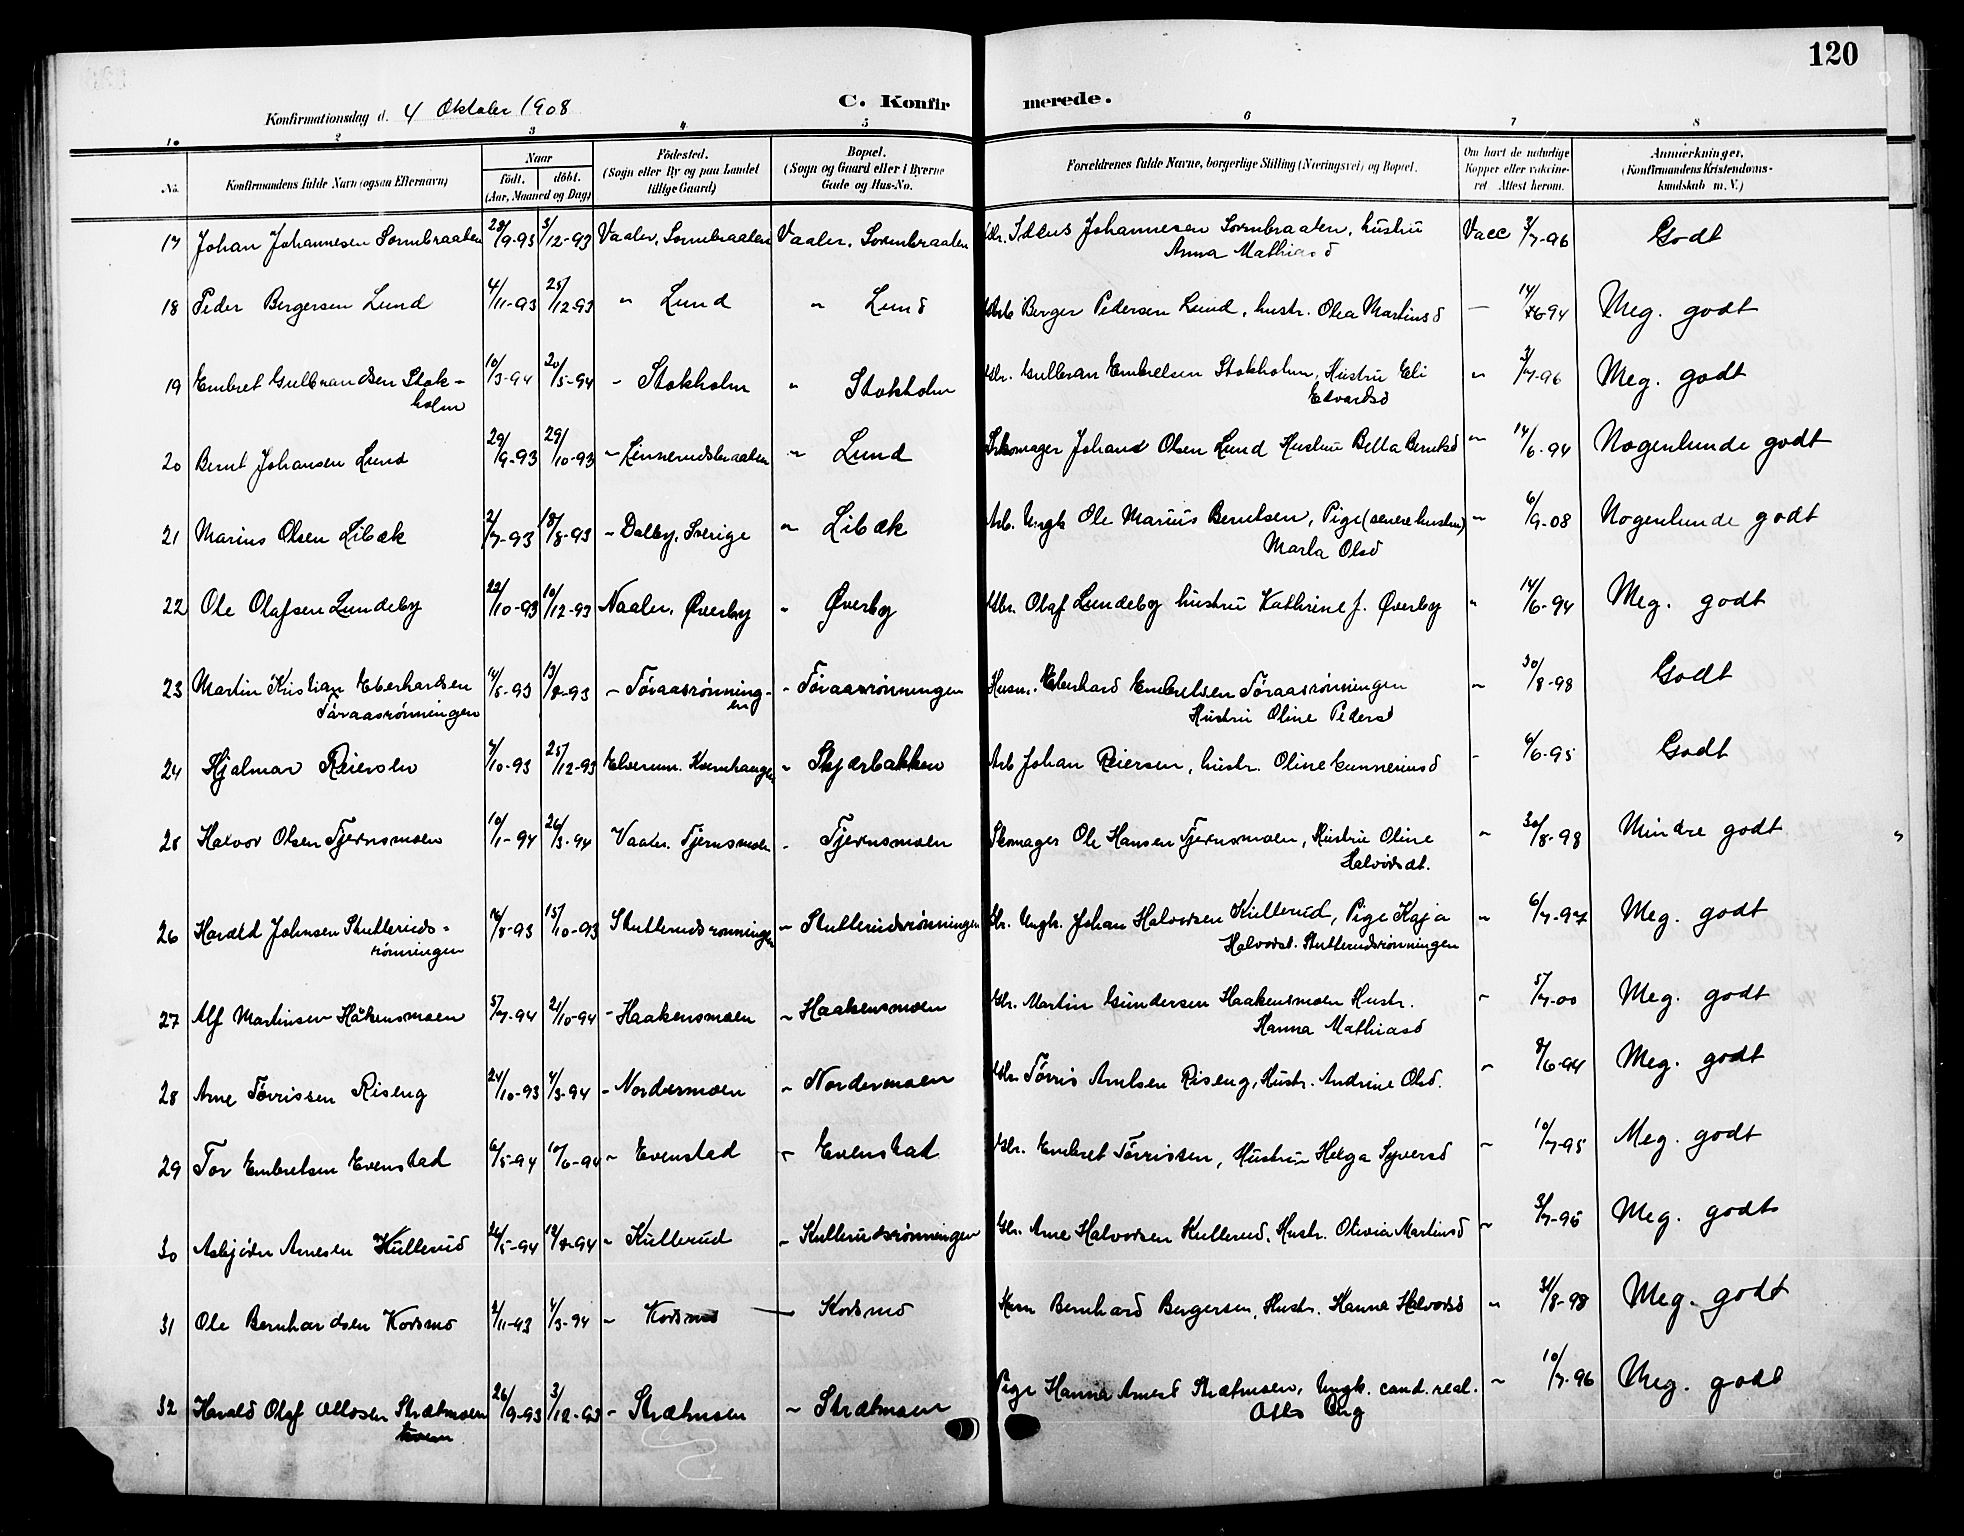 120
Konfirmationsdag d. 4 Oktober 1908
C. Konfirmerede.
1. 2 3 4 5 6 7 8
No. | Konfirmandens fulde Navn (ogsaa Efternavn) | Naar født, døbt. (Aar, Maaned og Dag) | Fødested. (Sogn eller By og paa Landet tillige Gaard) | Bopæl. (Sogn og Gaard eller i Byerne Gade og Hus-No.) | Forældrenes fulde Navne, borgerlige Stilling (Næringsvei) og Bopæl. | Om havt de naturlige Kopper eller vaccineret. Attest herom. | Anmærkninger. (Konfirmandens Kristendomskundskab m. V.)
17 Johan Johannesen Sormbraaten 23/9-93 3/12-93 Vaaler, Sormbraaten Vaaler, Sormbraaten Johannesen Sormbraaten, hustru Vacc 3/7-96 Godt
Anna Mathiasd
18 Peder Bergersen Lund 4/11-93 25/12-93 " Lund " Lund Arb Berger Pedersen Lund, hustr. Olea Martinsd — 14/6-94 Meg. godt
19 Embret Gulbrandsen Stok- 10/3-94 20/5-94 " Stokholm " Stokholm Gbr. Gulbran Embretsen Stokholm, Hustru Eli " 3/7-96 Meg. godt
holm Edvardsd
20 Bernt Johansen Lund 29/9-93 29/10-93 " Linnerudsbraaten " Lund Skomager Johan Olsen Lund Hustru Betta Berntsd " 14/6-94 Nogenlunde godt
21 Marius Olsen Libæk 2/7-93 18/8-93 " Dalby, Sverige " Libæk Arb. Ungk Ole Marius Berntsen, Pige (senere hustru) " 6/9-08 Nogenlunde godt
Marta Olsd
22 Ole Olafsen Lundeby 22/10-93 10/12-93 Vaaler, Øverby " Øverby Gbr. Olaf Lundeby hustru Kathrine f. Øverby " 14/6-94 Meg. godt
23 Martin Kristian Eberhardsen 14/5-93 13/8-93 " Føraasrønning- " Føraasrønningen Husm. Eberhard Embretsen Føraasrønningen " 30/8-98 Godt
Føraasrønningen en Hustru Oline Pedersd
24 Hjalmar Reiersen 4/10-93 25/12-93 Elverum. Kvernhaugen " Skjærbakken Arb Johan Reiersen, hustr. Oline Gunneriusd " 6/6-95 Godt
25 Halvor Olsen Tjernsmoen 10/1-94 26/3-94 Vaaler. Tjernsmoen " Tjernsmoen Skomager Ole Hansen Tjernsmoen, Hustru Oline " 30/8-98 Mindre godt
Halvorsdt.
26 Harald Johnsen Skulleruds- 16/8-93 15/10-93 Skullerudsrønningen " Skullerudsrønningen Gbr. Ungk. Johan Halvorsen Kullerud, Pige Kaja " 6/7-97 Meg. godt
rønningen Halvorsd. Skullerudsrønningen
27 Alf Martinsen Håkensmoen 5/7-94 21/10-94 " Haakensmoen " Haakensmoen Gbr. Martin Gundersen Haakensmoen Hustr. " 5/7-00 Meg. godt
Hanna Mathiasd
28 Arne Tørrissen Riseng 24/10-93 4/3-94 " Nordermoen " Nordermoen Gbr. Tørris Arnesen Riseng, Hustr. Andrine Olsd. " 8/6-94 Meg. godt
29 Tor Embretsen Evenstad 6/5-94 10/6-94 " Evenstad " Evenstad Gbr. Embret Tørrissen, Hustru Helga Syversd " 10/7-95 Meg. godt
30 Asbjørn Arnesen Kullerud 24/5-94 19/8-94 " Kullerud " Kullerudsrønningen Gbr. Arne Halvorsen Kullerud, Hustr. Olivia Martinsd " 3/7-96 Meg. godt
31 Ole Bernhardsen Korsmo 2/11-93 4/3-94 " Korsmo — Korsmo Husm Bernhard Bergersen, Hustr. Hanna Halvorsd " 31/8-98 Meg. godt
32 Harald Olaf Ottosen Strætmoen 26/9-93 3/12-93 " Strætmoen " Strætmoen Pige Hanna Arnesd Strætmoen, Ungk. cand. real. " 10/7-96 Meg. godt
Otto